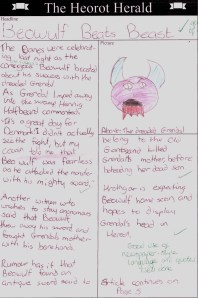 The Heorot Herald
Headline
Beowulf Beats Beast
Picture
The Danes were celebrat-
ing last night as the
courageous Beowulf boasted
about his success with the
dreaded Grendel
As Grendel limped away
into the misty
Halfbeard commented
"It's a great day for
Denmark I didn't actually
see the fight, but my
could tell me that
Beowulf was fearless
as he attacked the monster
with his mighty sword."
Another witness who
wishes to stay anonymous
said that Beowulf
threw away his sword and
fought Grendel's mother
with his bare hands
Rumour has it that
Beowulf found an
antique sword said to
Above: The dreaded Grendel
belong to the
Giants and killed
Grendel's mother before
beheading her dead son
Hrothgar is expecting
Beowulf home soon and
hopes to display
Grendel's head in
Heorot
Good use of
newspaper style
language and quotes
Well done
Article continues on
Page 5